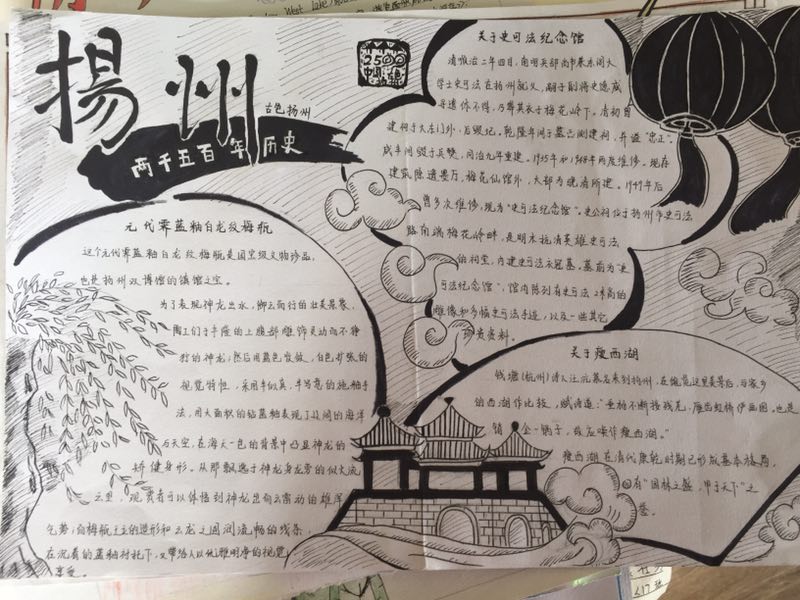 West Lake
揚州
2500
古色扬州
两千五百年历史
元代霁蓝釉白龙纹梅瓶
这个元代霁蓝釉白龙纹梅瓶是国宝级文物珍品,
也是扬州双博馆的镇馆之宝。
为了表现神龙出水,脚云而行的壮美景象,
陶工们于丰隆的上腹部雕饰灵动而不狰
狞的神龙;然后用蓝色收敛、白色扩张的
视觉特性,采用半似真、半写意的施釉手
法,用大面积的钴蓝釉表现了辽阔的海洋
与天空,在海天一色的背景中凸显神龙的
矫健身形。从那飘逸于神龙身龙旁的似火流
云里,观赏者可以体悟到神龙出和云雷动的雄浑
气势;向梅瓶上的造形和云龙之圆润流畅的线条,
在沉着的蓝釉衬托下,又带给人以优雅明净的视觉
享受。
关于史可法纪念馆
清顺治二年四月,南明兵部尚书兼东阁大
学士史可法在扬州就义,嗣子副将史德威
寻遗体不得,乃葬其衣于梅花岭下。清初曾
建祠于大东门外,后毁圮。乾隆年间于墓西侧建祠,并谥"忠正"。
咸丰间毁于兵燹,同治九年重建。1935年和1948年两度维修。现存
建筑除遗墨厅、梅花仙馆外,大部为晚清所建。1949年后
曾多次维修,现为"史可法纪念馆"。史公祠位于扬州市史可法
路南端梅花岭畔,是明末抗清英雄史可法
的祠堂,内建史可法衣冠墓,墓前为"史
可法纪念馆",馆内陈列有史可法球高的
雕像和多幅史可法手迹,以及一些其它
珍贵资料。
关于瘦西湖
钱塘(杭州)诗人汪沆慕名来到扬州,在饱览这里美景后,与家乡
的西湖作比较,赋诗道:"垂杨不断接残芜,雁齿虹桥俨画图。也是
销金一锅子,故应唤作瘦西湖。"
瘦西湖在清代康乾时期已形成基本格局,
因有"园林之盛,甲于天下"之
誉。